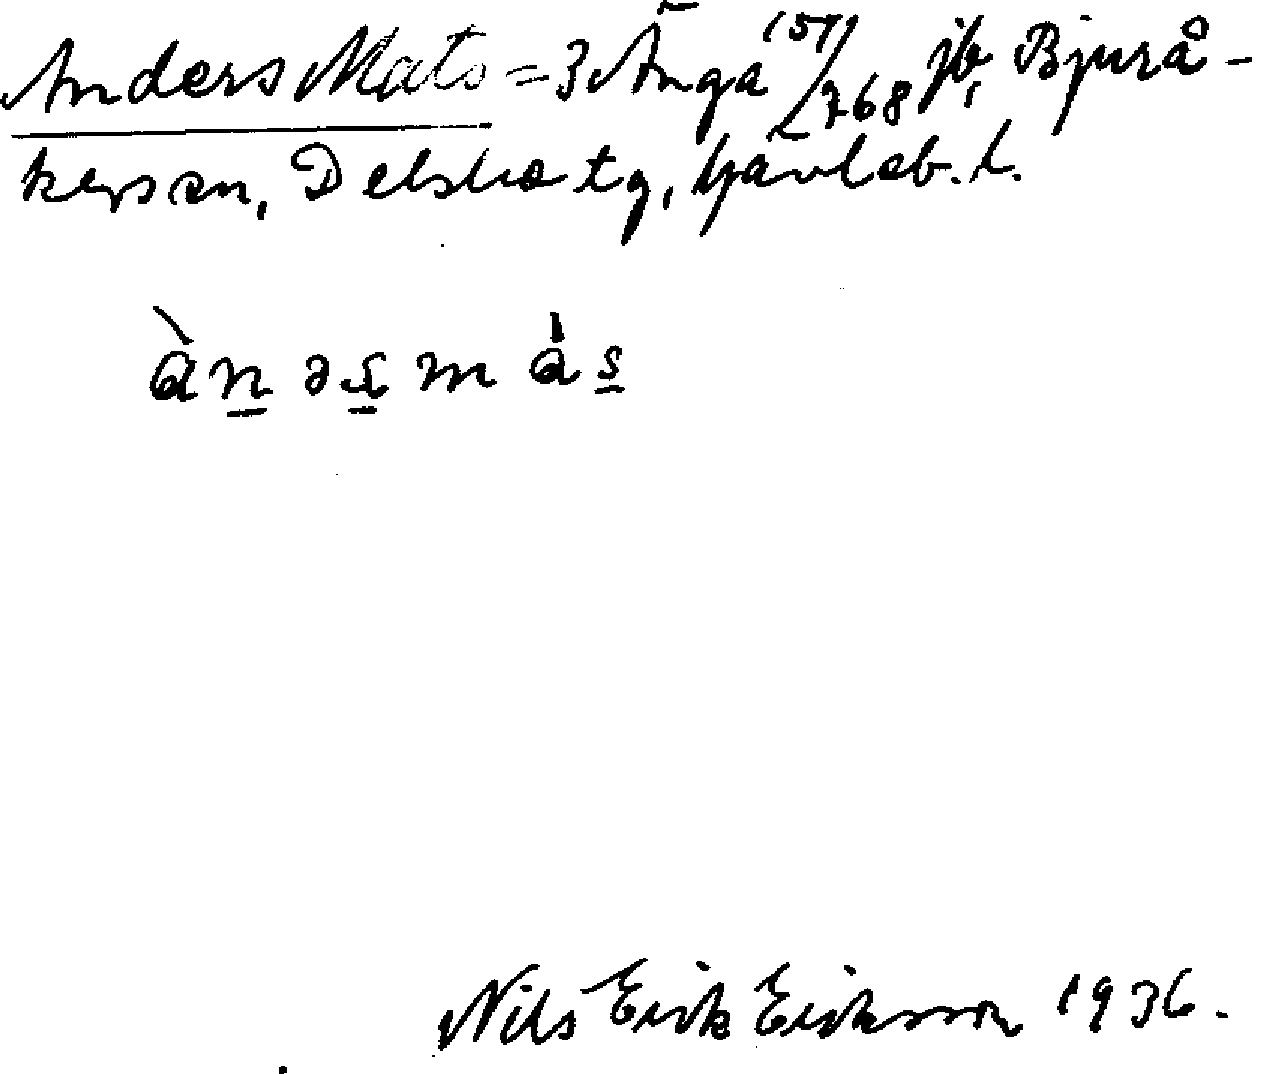 Anders Mats = 3 Änga (57)/768 jb, Bjurå-
kers sn, Delsbo tg, Gävleb. l.
àn̲əs̲màs̲
Nils Erik Eriksson 1936.